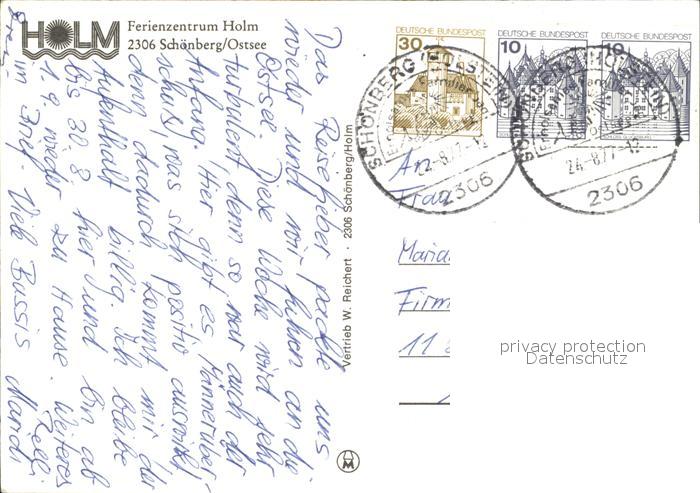 HOLM
Ferienzentrum Holm
2306 Schönberg/Ostsee
Das Reisefieber packte uns
wieder und wir fuhren an die
Ostsee. Diese Woche wird sehr
turbulent denn so war auch der
Anfang. Hier gibt es Männerüber-
schuß, was sich positiv auswirkt
denn dadurch kommt mir der
Aufenthalt billig. Ich bleibe
bis 30.8 hier und bin ab
1.9. wieder zu Hause. Weiteres
im Brief. Viele Bussis
Mardi
Vertrieb W. Reichert · 2306 Schönberg/Holm
30
DEUTSCHE BUNDESPOST
10
DEUTSCHE BUNDESPOST
10
DEUTSCHE BUNDESPOST
SCHÖNBERG (HOLSTEIN)
2306
SCHÖNBERG (HOLSTEIN)
24.-8.77.-12
2306
An
Frau
Maria
Firm
11
privacy protection
Datenschutz